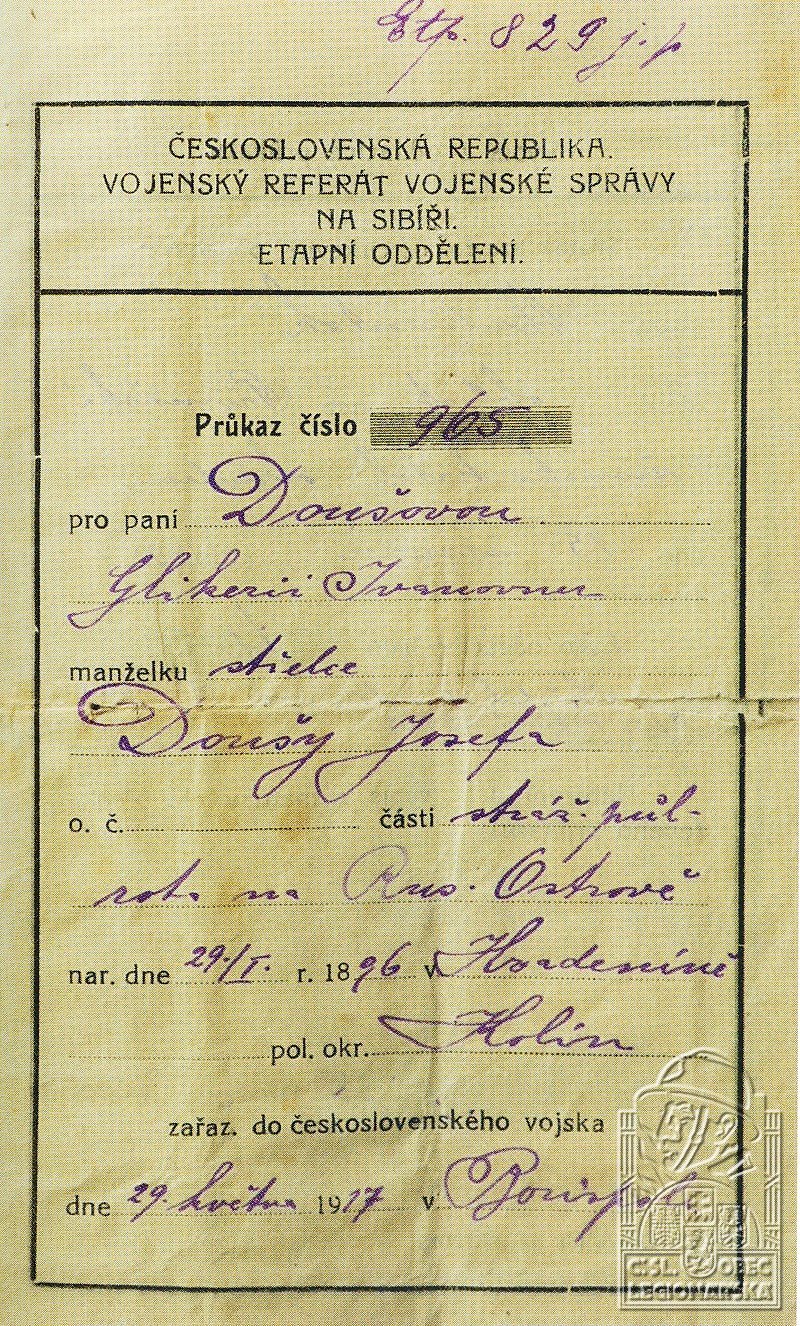 Etp. 829 j. p
ČESKOSLOVENSKÁ REPUBLIKA.
VOJENSKÝ REFERÁT VOJENSKÉ SPRÁVY
NA SIBÍŘI.
ETAPNÍ ODDĚLENÍ.
Průkaz číslo 965
pro paní Doušovou
Glikerii Ivanovnu
manželku střelce
Doušy Josefa
o. č. části stráž. půl-
rota na Rus. Ostrově
nar. dne 29./I. r. 1896 v
pol. okr. Kolín
zařaz. do československého vojska
dne 29. května 1917 v Borispol
ČSL. OBEC
LEGIONÁŘSKÁ